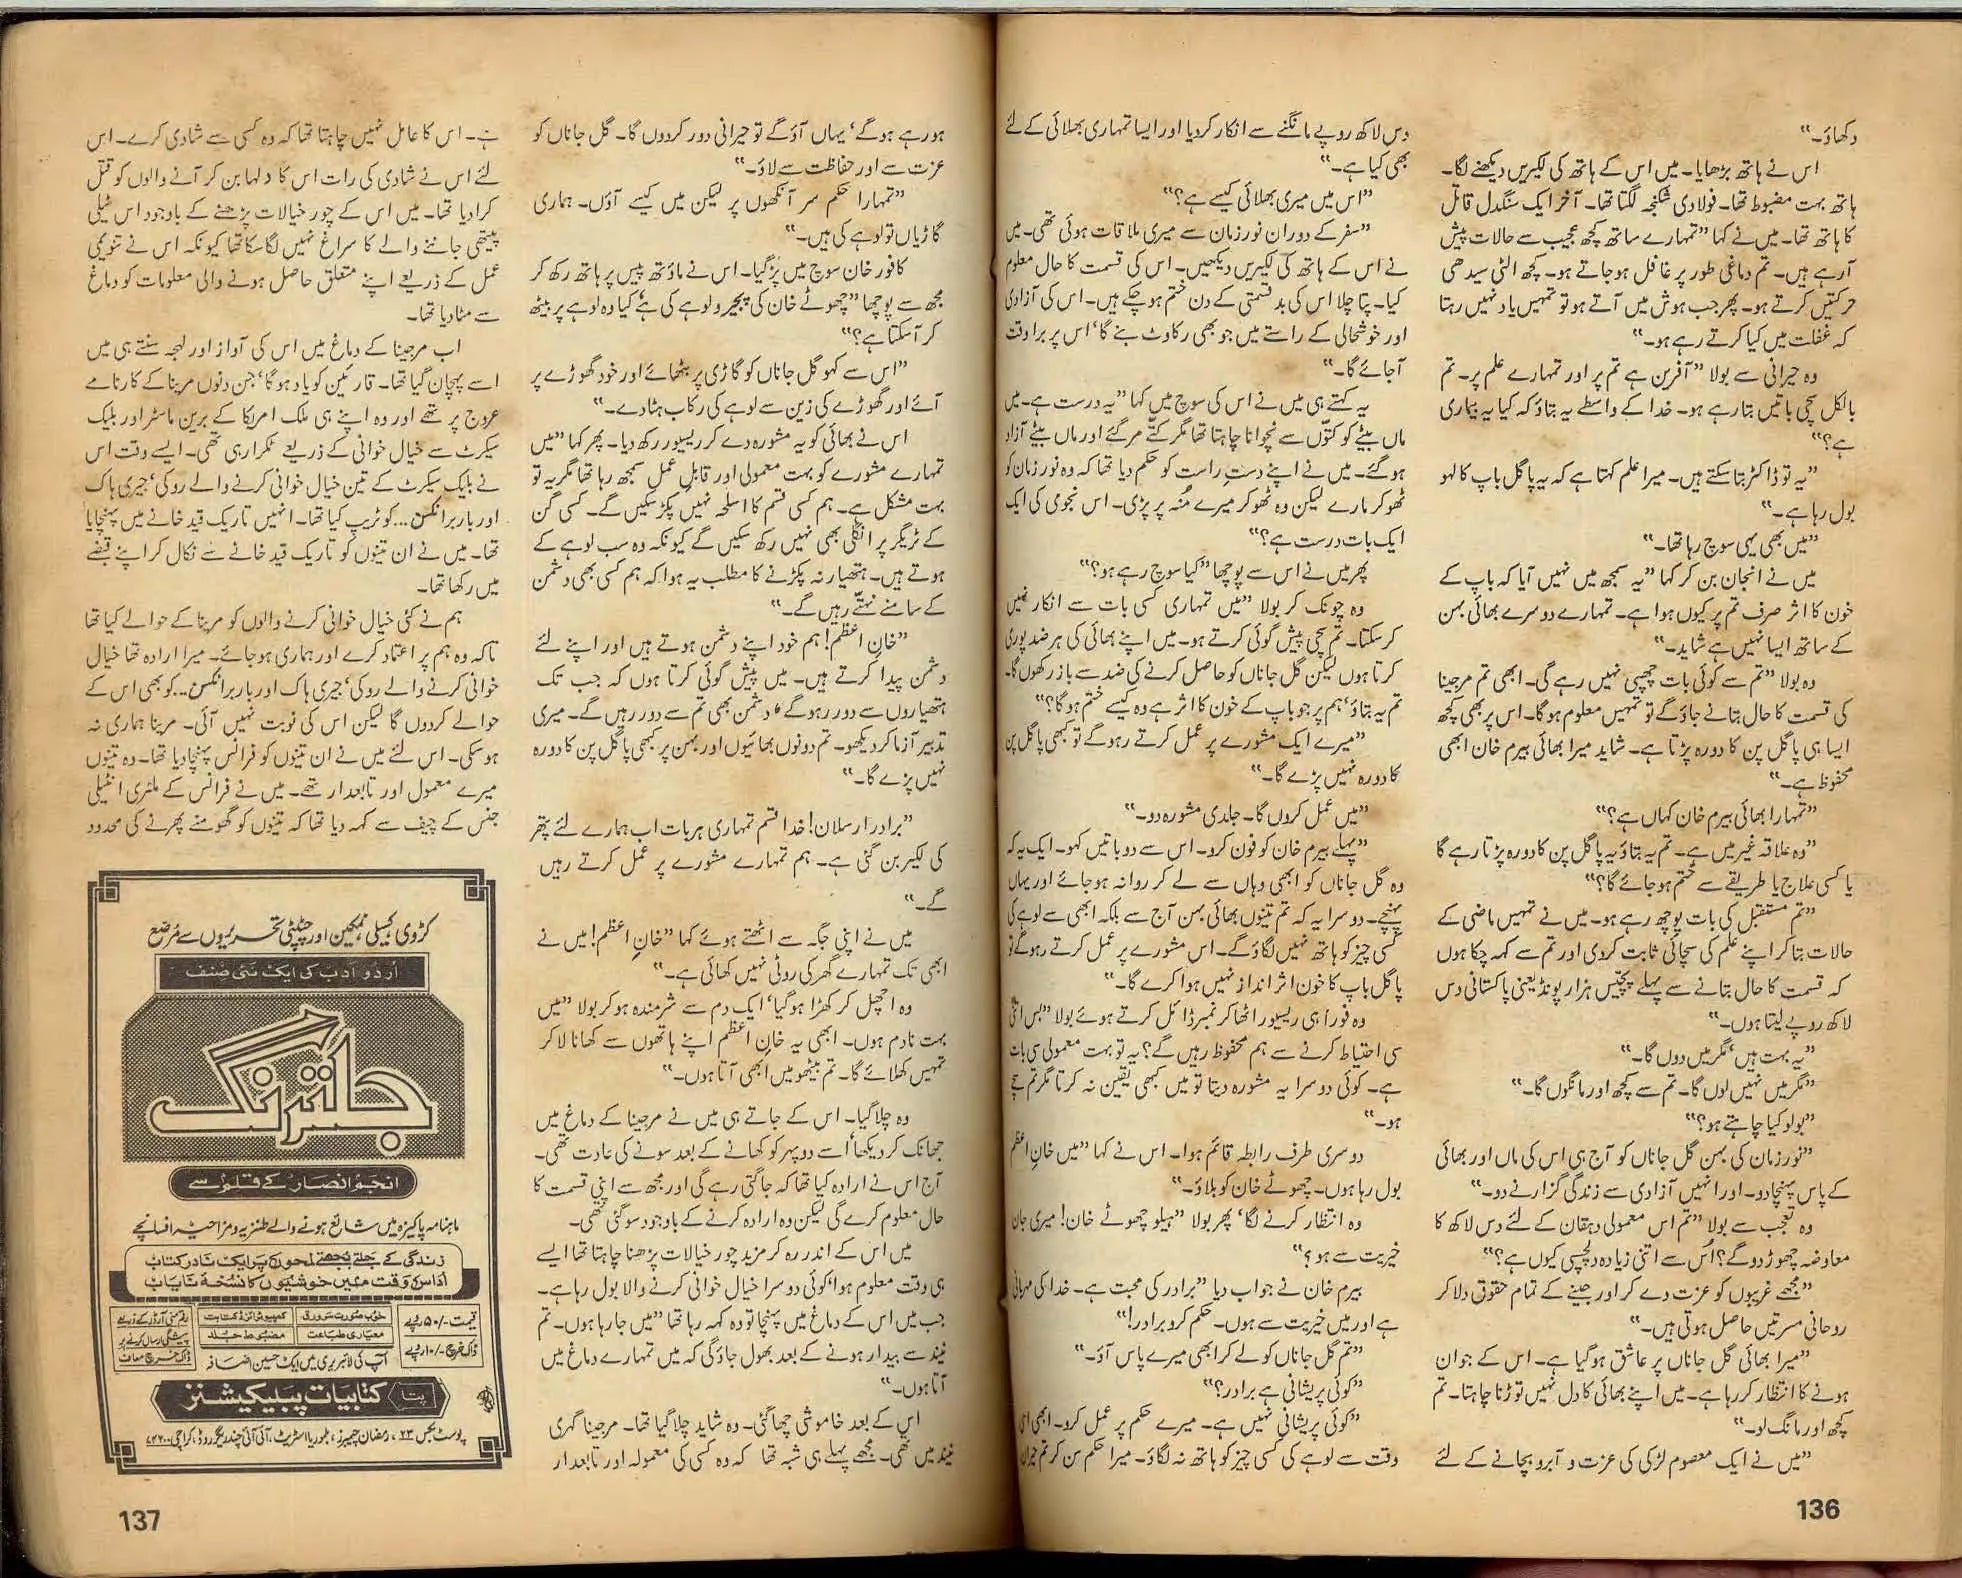 دکھاؤ۔“
اس نے ہاتھ بڑھایا۔ میں اس کے ہاتھ کی لکیریں دیکھنے لگا۔
ہاتھ بہت مضبوط تھا۔ فولادی شکنجہ لگتا تھا۔ آخر ایک سنگدل قاتل
کا ہاتھ تھا۔ میں نے کہا ”تمہارے ساتھ کچھ عجیب سے حالات پیش
آرہے ہیں۔ تم دماغی طور پر غافل ہوجاتے ہو۔ کچھ الٹی سیدھی
حرکتیں کرتے ہو۔ پھر جب ہوش میں آتے ہو تو تمہیں یاد نہیں رہتا
کہ غفلت میں کیا کرتے رہے ہو۔“
وہ حیرانی سے بولا ”آفرین ہے تم پر اور تمہارے علم پر۔ تم
بالکل سچی باتیں بتا رہے ہو۔ خدا کے واسطے یہ بتاؤ کہ کیا یہ بیماری
ہے؟“
”یہ تو ڈاکٹر بتا سکتے ہیں۔ میرا علم کہتا ہے کہ یہ پاگل باپ کا لہو
بول رہا ہے۔“
”میں بھی یہی سوچ رہا تھا۔“
میں نے انجان بن کر کہا ”یہ سمجھ میں نہیں آیا کہ باپ کے
خون کا اثر صرف تم پر کیوں ہوا ہے۔ تمہارے دوسرے بھائی بہن
کے ساتھ ایسا نہیں ہے شاید۔“
وہ بولا ”تم سے کوئی بات چھپی نہیں رہے گی۔ ابھی تم مرجینا
کی قسمت کا حال بتانے جاؤ گے تو تمہیں معلوم ہوگا۔ اس پر بھی کچھ
ایسا ہی پاگل پن کا دورہ پڑتا ہے۔ شاید میرا بھائی بیرم خان ابھی
محفوظ ہے۔“
”تمہارا بھائی بیرم خان کہاں ہے؟“
”وہ علاقہ غیر میں ہے۔ تم یہ بتاؤ یہ پاگل پن کا دورہ پڑتا رہے گا
یا کسی علاج یا طریقے سے ختم ہوجائے گا؟“
”تم مستقبل کی بات پوچھ رہے ہو۔ میں نے تمہیں ماضی کے
حالات بتا کر اپنے علم کی سچائی ثابت کردی اور تم سے کہہ چکا ہوں
کہ قسمت کا حال بتانے سے پہلے پچیس ہزار پونڈ یعنی پاکستانی دس
لاکھ روپے لیتا ہوں۔“
”یہ بہت ہیں‘ مگر میں دوں گا۔“
”مگر میں نہیں لوں گا۔ تم سے کچھ اور مانگوں گا۔“
”بولو کیا چاہتے ہو؟“
”نور زمان کی بہن گل جاناں کو آج ہی اس کی ماں اور بھائی
کے پاس پہنچا دو۔ اور انہیں آزادی سے زندگی گزارنے دو۔“
وہ تعجب سے بولا ”تم اس معمولی دہقان کے لئے دس لاکھ کا
معاوضہ چھوڑ دو گے؟ اُس سے اتنی زیادہ دلچسپی کیوں ہے؟“
”مجھے غریبوں کو عزت دے کر اور جینے کے تمام حقوق دلا کر
روحانی مسرتیں حاصل ہوتی ہیں۔“
”میرا بھائی گل جاناں پر عاشق ہوگیا ہے۔ اس کے جوان
ہونے کا انتظار کر رہا ہے۔ میں اپنے بھائی کا دل نہیں توڑنا چاہتا۔ تم
کچھ اور مانگ لو۔“
”میں نے ایک معصوم لڑکی کی عزت و آبرو بچانے کے لئے
دس لاکھ روپے مانگنے سے انکار کردیا اور ایسا تمہاری بھلائی کے لئے
بھی کیا ہے۔“
”اس میں میری بھلائی کیسے ہے؟“
”سفر کے دوران نور زمان سے میری ملاقات ہوئی تھی۔ میں
نے اس کے ہاتھ کی لکیریں دیکھیں۔ اس کی قسمت کا حال معلوم
کیا۔ پتا چلا اس کی بد قسمتی کے دن ختم ہوچکے ہیں۔ اس کی آزادی
اور خوشحالی کے راستے میں جو بھی رکاوٹ بنے گا‘ اس پر برا وقت
آجائے گا۔“
یہ کہتے ہی میں نے اس کی سوچ میں کہا ”یہ درست ہے۔ میں
ماں بیٹے کو کتوں سے نچوانا چاہتا تھا مگر کتے مرگئے اور ماں بیٹے آزاد
ہوگئے۔ میں نے اپنے دستِ راست کو حکم دیا تھا کہ وہ نور زمان کو
ٹھوکر مارے لیکن وہ ٹھوکر میرے منہ پر پڑی۔ اس نجومی کی ایک
ایک بات درست ہے؟“
پھر میں نے اس سے پوچھا ”کیا سوچ رہے ہو؟“
وہ چونک کر بولا ”میں تمہاری کسی بات سے انکار نہیں
کرسکتا۔ تم سچی پیش گوئی کرتے ہو۔ میں اپنے بھائی کی ہر ضد پوری
کرتا ہوں لیکن گل جاناں کو حاصل کرنے کی ضد سے باز رکھوں گا۔
تم یہ بتاؤ‘ ہم پر جو باپ کے خون کا اثر ہے وہ کیسے ختم ہوگا؟“
”میرے ایک مشورے پر عمل کرتے رہو گے تو کبھی پاگل پن
کا دورہ نہیں پڑے گا۔“
”میں عمل کروں گا۔ جلدی مشورہ دو۔“
”پہلے بیرم خان کو فون کرو۔ اس سے دو باتیں کہو۔ ایک یہ کہ
وہ گل جاناں کو ابھی وہاں سے لے کر روانہ ہوجائے اور یہاں
پہنچے۔ دوسرا یہ کہ تم تینوں بھائی بہن آج سے بلکہ ابھی سے لوہے کی
کسی چیز کو ہاتھ نہیں لگاؤ گے۔ اس مشورے پر عمل کرتے رہو گے تو
پاگل باپ کا خون اثر انداز نہیں ہوا کرے گا۔“
وہ فوراً ہی ریسیور اٹھا کر نمبر ڈائل کرتے ہوئے بولا ”بس اتنی
سی احتیاط کرنے سے ہم محفوظ رہیں گے؟ یہ تو بہت معمولی سی بات
ہے۔ کوئی دوسرا یہ مشورہ دیتا تو میں کبھی یقین نہ کرتا مگر تم سچے
ہو۔“
دوسری طرف رابطہ قائم ہوا۔ اس نے کہا ”میں خانِ اعظم
بول رہا ہوں۔ چھوٹے خان کو بلاؤ۔“
وہ انتظار کرنے لگا‘ پھر بولا ”ہیلو چھوٹے خان! میری جان
خیریت سے ہو؟“
بیرم خان نے جواب دیا ”برادر کی محبت ہے۔ خدا کی مہربانی
ہے اور میں خیریت سے ہوں۔ حکم کرو برادر!“
”تم گل جاناں کو لے کر ابھی میرے پاس آؤ۔“
”کوئی پریشانی ہے برادر؟“
”کوئی پریشانی نہیں ہے۔ میرے حکم پر عمل کرو۔ ابھی اسی
وقت سے لوہے کی کسی چیز کو ہاتھ نہ لگاؤ۔ میرا حکم سن کر تم حیران
136
ہورہے ہوگے‘ یہاں آؤ گے تو حیرانی دور کردوں گا۔ گل جاناں کو
عزت سے اور حفاظت سے لاؤ۔“
”تمہارا حکم سر آنکھوں پر لیکن میں کیسے آؤں۔ ہماری
گاڑیاں تو لوہے کی ہیں۔“
کافور خان سوچ میں پڑگیا۔ اس نے ماؤتھ پیس پر ہاتھ رکھ کر
مجھ سے پوچھا ”چھوٹے خان کی پجیرو لوہے کی ہے‘ کیا وہ لوہے پر بیٹھ
کر آسکتا ہے؟“
”اس سے کہو گل جاناں کو گاڑی پر بٹھائے اور خود گھوڑے پر
آئے اور گھوڑے کی زین سے لوہے کی رکاب ہٹا دے۔“
اس نے بھائی کو یہ مشورہ دے کر ریسیور رکھ دیا۔ پھر کہا ”میں
تمہارے مشورے کو بہت معمولی اور قابلِ عمل سمجھ رہا تھا مگر یہ تو
بہت مشکل ہے۔ ہم کسی قسم کا اسلحہ نہیں پکڑ سکیں گے۔ کسی گن
کے ٹریگر پر انگلی بھی نہیں رکھ سکیں گے کیونکہ وہ سب لوہے کے
ہوتے ہیں۔ ہتھیار نہ پکڑنے کا مطلب یہ ہوا کہ ہم کسی بھی دشمن
کے سامنے نہتے رہیں گے۔“
”خانِ اعظم! ہم خود اپنے دشمن ہوتے ہیں اور اپنے لئے
دشمن پیدا کرتے ہیں۔ میں پیش گوئی کرتا ہوں کہ جب تک
ہتھیاروں سے دور رہو گے‘ دشمن بھی تم سے دور رہیں گے۔ میری
تدبیر آزما کر دیکھو۔ تم دونوں بھائیوں اور بہن پر کبھی پاگل پن کا دورہ
نہیں پڑے گا۔“
”برادر ارسلان! خدا قسم تمہاری ہر بات اب ہمارے لئے پتھر
کی لکیر بن گئی ہے۔ ہم تمہارے مشورے پر عمل کرتے رہیں
گے۔“
میں نے اپنی جگہ سے اٹھتے ہوئے کہا ”خانِ اعظم! میں نے
ابھی تک تمہارے گھر کی روٹی نہیں کھائی ہے۔“
وہ اچھل کر کھڑا ہوگیا‘ ایک دم سے شرمندہ ہو کر بولا ”میں
بہت نادم ہوں۔ ابھی یہ خان اعظم اپنے ہاتھوں سے کھانا لا کر
تمہیں کھلائے گا۔ تم بیٹھو میں ابھی آتا ہوں۔“
وہ چلا گیا۔ اس کے جاتے ہی میں نے مرجینا کے دماغ میں
جھانک کر دیکھا اُسے دوپہر کو کھانے کے بعد سونے کی عادت تھی۔
آج اس نے ارادہ کیا تھا کہ جاگتی رہے گی اور مجھ سے اپنی قسمت کا
حال معلوم کرے گی لیکن وہ ارادہ کرنے کے باوجود سو گئی تھی۔
میں اس کے اندر رہ کر مزید چور خیالات پڑھنا چاہتا تھا ایسے
ہی وقت معلوم ہوا‘ کوئی دوسرا خیال خوانی کرنے والا بول رہا ہے۔
جب میں اس کے دماغ میں پہنچا تو وہ کہہ رہا تھا ”میں جارہا ہوں۔ تم
نیند سے بیدار ہونے کے بعد بھول جاؤ گی کہ میں تمہارے دماغ میں
آتا ہوں۔“
اس کے بعد خاموشی چھا گئی۔ وہ شاید چلا گیا تھا۔ مرجینا گہری
نیند میں تھی۔ مجھے پہلے ہی شبہ تھا کہ وہ کسی کی معمولہ اور تابعدار
ہے۔ اس کا عامل نہیں چاہتا تھا کہ وہ کسی سے شادی کرے۔ اس
لئے اس نے شادی کی رات اس کا دلہا بن کر آنے والوں کو قتل
کرا دیا تھا۔ میں اس کے چور خیالات پڑھنے کے باوجود اس ٹیلی
پیتھی جاننے والے کا سراغ نہیں لگا سکا تھا کیونکہ اس نے تنویمی
عمل کے ذریعے اپنے متعلق حاصل ہونے والی معلومات کو دماغ
سے مٹا دیا تھا۔
اب مرجینا کے دماغ میں اس کی آواز اور لہجہ سنتے ہی میں
اسے پہچان گیا تھا۔ قارئین کو یاد ہوگا‘ جن دنوں مرینا کے کارنامے
عروج پر تھے اور وہ اپنے ہی ملک امریکا کے برین ماسٹر اور بلیک
سیکرٹ سے خیال خوانی کے ذریعے ٹکرا رہی تھی۔ ایسے وقت اس
نے بلیک سیکرٹ کے تین خیال خوانی کرنے والے روکی‘ جیری ہاک
اور باربرا نکسن... کو ٹریپ کیا تھا۔ انہیں تاریک قید خانے میں پہنچایا
تھا۔ میں نے ان تینوں کو تاریک قید خانے سے نکال کر اپنے قبضے
میں رکھا تھا۔
ہم نے کئی خیال خوانی کرنے والوں کو مرینا کے حوالے کیا تھا
تاکہ وہ ہم پر اعتماد کرے اور ہماری ہوجائے۔ میرا ارادہ تھا خیال
خوانی کرنے والے روکی‘ جیری ہاک اور باربرا نکسن... کو بھی اس کے
حوالے کردوں گا لیکن اس کی نوبت نہیں آئی۔ مرینا ہماری نہ
ہوسکی۔ اس لئے میں نے ان تینوں کو فرانس پہنچا دیا تھا۔ وہ تینوں
میرے معمول اور تابعدار تھے۔ میں نے فرانس کے ملٹری انٹیلی
جنس کے چیف سے کہہ دیا تھا کہ تینوں کو گھومنے پھرنے کی محدود
کڑوی کسیلی نمکین اور چٹپٹی تحریروں سے مرصّع
اُردو ادب کی ایک نئی صنف
جلترنگ
انجم انصار کے قلم سے
ماہنامہ پاکیزہ میں شائع ہونے والے طنزیہ و مزاحیہ افسانچے
زندگی کے جلتے بجھتے لمحوں پر ایک نادر کتاب
اداس وقت میں خوشیوں کا نسخۂ نایاب
قیمت -/۵۰ روپے
ڈاک خرچ -/۱۰ روپے
خوب صورت سرورق
کمپیوٹرائزڈ کتابت
معیاری طباعت
مضبوط جلد
رقم منی آرڈر کے ذریعے
پیشگی ارسال کرنے پر
ڈاک خرچ معاف
آپ کی لائبریری میں ایک حسین اضافہ
پتا
کتابیات پبلیکیشنز
پوسٹ بکس ۲۳، رمضان چیمبرز، بلموریا اسٹریٹ، آئی آئی چندریگر روڈ، کراچی ۷۴۲۰۰
137